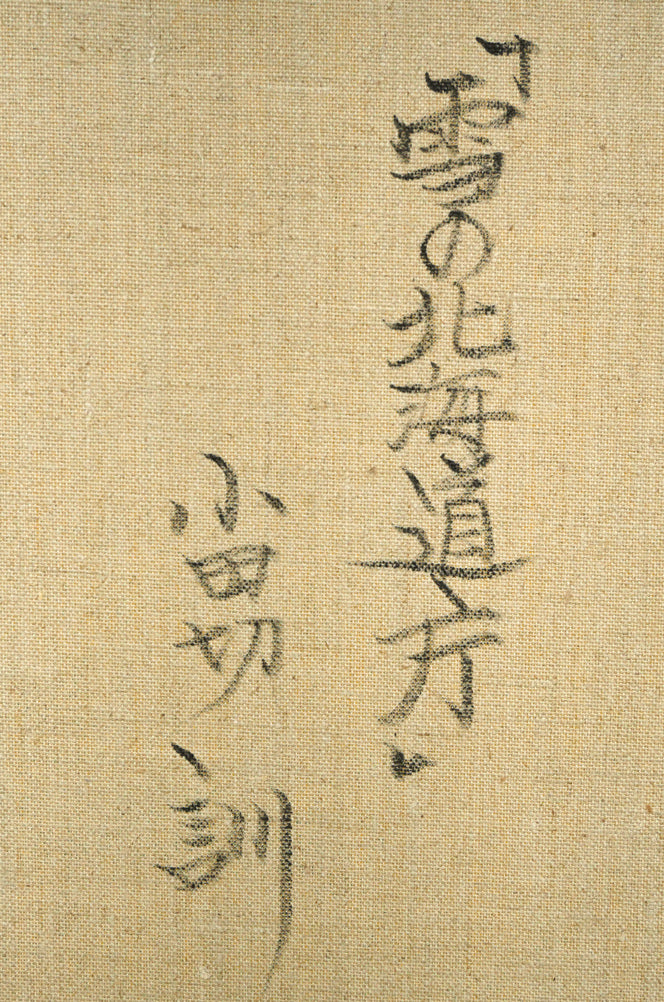 「雪の北海道方」
小田切 訓